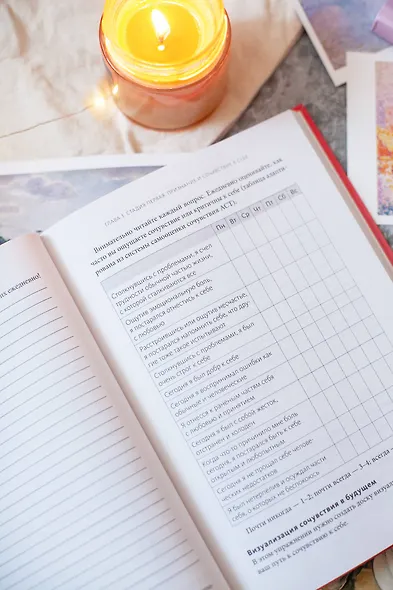 их ежедневно!
ГЛАВА 1. СТАДИЯ ПЕРВАЯ: ПРИЗНАНИЕ И СОЧУВСТВИЕ К СЕБЕ
Внимательно читайте каждый вопрос. Ежедневно оценивайте, как
часто вы ощущаете сочувствие или критичны к себе (таблица адапти-
рована из системы самооценки сочувствия ACT).
Пн Вт Ср Чт Пт Сб Вс
Столкнувшись с проблемами, я счел
трудности обычной частью жизни,
с которой сталкиваются все
Ощутив эмоциональную боль,
я постарался отнестись к себе
с любовью
Расстроившись или ощутив несчастье,
я постарался напомнить себе, что дру-
гие тоже такое испытывают
Столкнувшись с проблемами, я был
очень строг к себе
Сегодня я был добр к себе
Сегодня я воспринимал ошибки как
обычные и человеческие
Я отнесся к раненым частям себя
с любовью и принятием
Сегодня я был с собой жесток,
отстранен и холоден
Когда что-то причинило мне боль
сегодня, я постарался быть к себе
открытым и любопытным
Сегодня я не прощал себе челове-
ческих недостатков
Я был нетерпелив и осуждал части
себя, о которых не беспокоюсь
Почти никогда — 1–2; почти всегда — 3–4; всегда —
Визуализация сочувствия в будущем
В этом упражнении нужно создать доску визуали
ваш путь к сочувствию к себе.